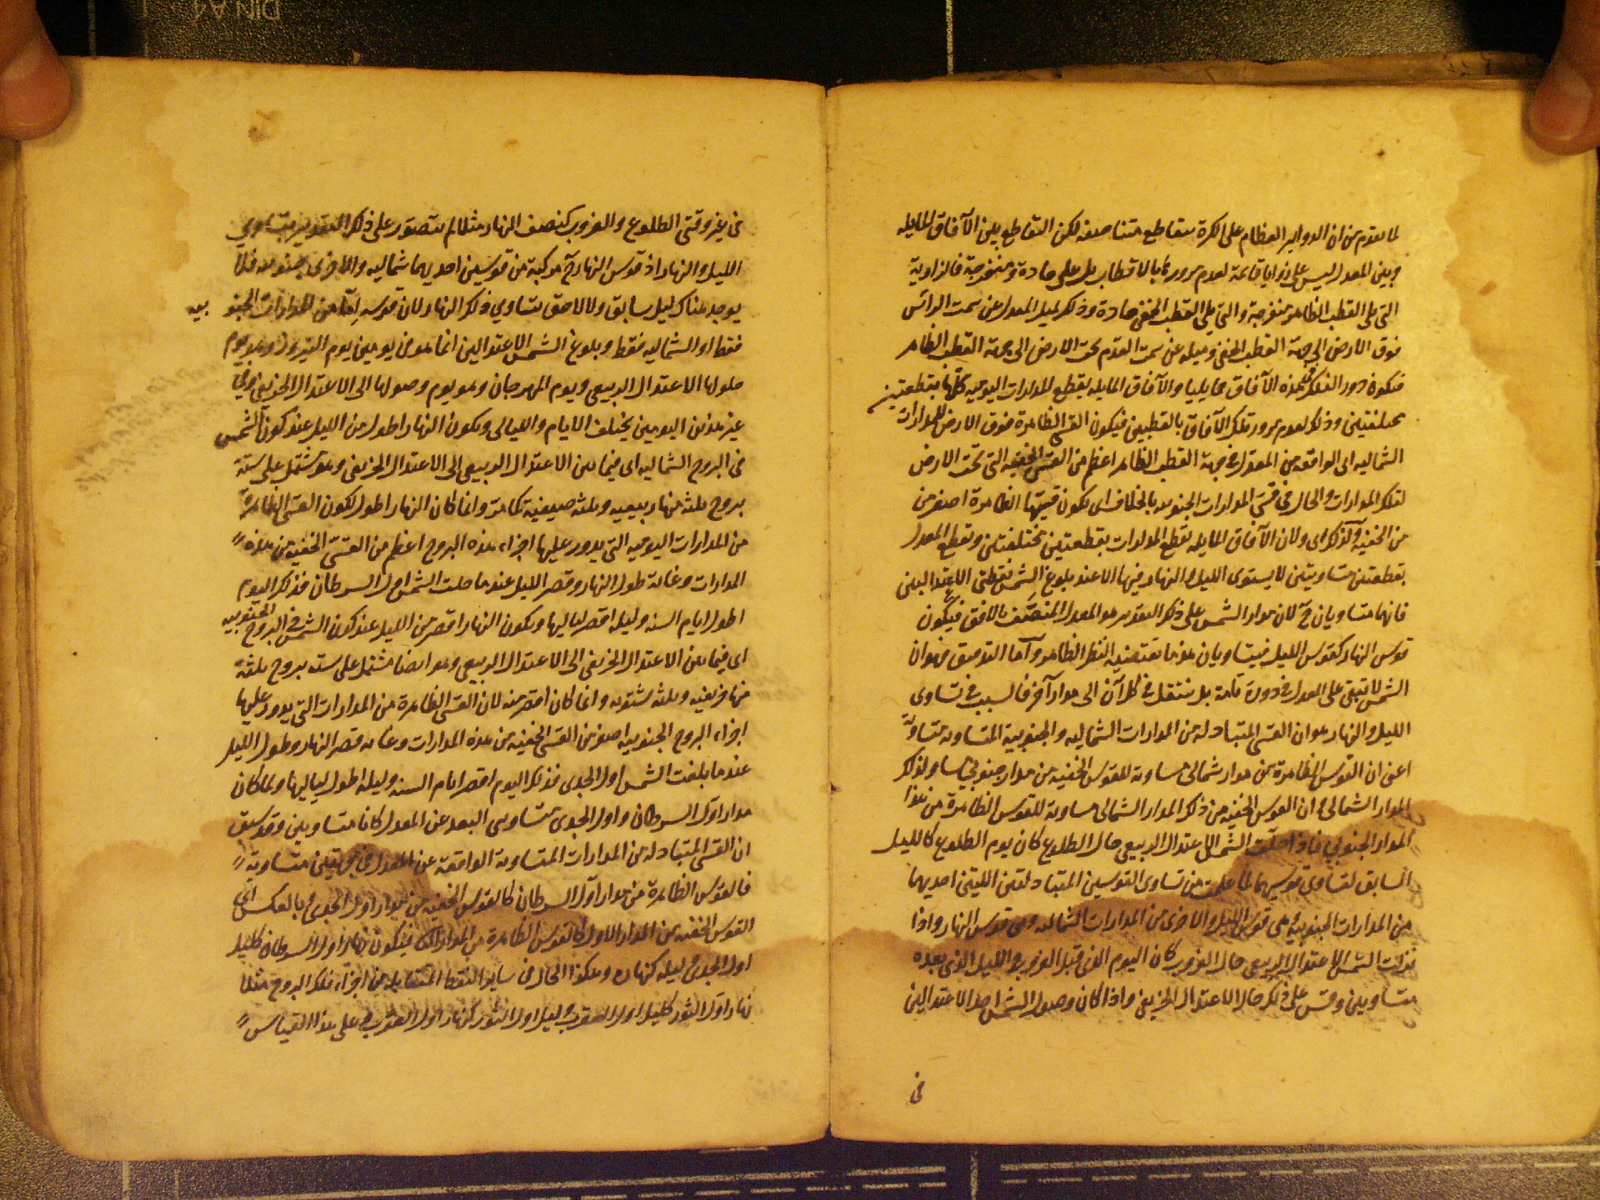 لما تقدم من ان الدواير العظام على الكرة متقاطع متناصفه لكن التقاطع بين الآفاق المايله
وبين المعدل ليس على زوايا قائمة لعدم مرورها بالاقطاب بل على حادة ومنفرجة فالزاوية
التي تلى القطب الظاهر منفرجة والتي تلى القطب الخفى حادة وذلك لميل المعدل عن سمت الرأس
فوق الارض الى جهة القطب الخفى وميله عن سمت القدم تحت الارض الى جهة القطب الظاهر
فيكون دور الفلك في هذه الآفاق حمايليا والآفاق المايله يقطع المدارات اليوميه كلها بقطعتين
مختلفتين وذلك لعدم مرور تلك الآفاق بالقطبين فيكون القسى الظاهرة فوق الارض للمدارات
الشماليه اى الواقعه من المعدل في جهة القطب الظاهر اعظم من القسى الخفيه التى تحت الارض
لتلك المدارات والحال في قسى المدارات الجنوبيه بالخلاف اى يكون قسيها الظاهرة اصغر من
من الخفية لذلك اى ولان الآفاق المايله تقطع المدارات بقطعتين مختلفتين وتقطع المعدل
بقطعتين متساويتين لا يستوى الليل والنهار فيها الا عند بلوغ الشمس نقطتى الاعتدالين
فانهما متساويان ح لان مدار الشمس على ذلك التقدير هو المعدل المنصف بالافق فيكون
قوس النهار كقوس الليل فيتساويان هذا ما تقتضيه النظر الظاهر وآما التدقيق فهو ان
الشمس لا تبقى على المعدل في دورة تامة بل ينتقل في كل آن الى مدار آخر فالسبب في تساوى
الليل والنهار هو ان القسى المتبادله من المدارات الشماليه والجنوبية المتساويه متساويه
اعنى ان القوس الظاهرة من مدار شمالى مساويه للقوس الخفيه من مدار جنوبي مساو لذلك
المدار الشمالى وان القوس الخفيه من ذلك المدار الشمالى مساوية للقوس الظاهرة من هذا
المدار الجنوبي فاذا حلت الشمس الاعتدال الربيعى حال الطلوع كان يوم الطلوع كالليل
السابق لتساوى قوسيهما لما علمت من تساوى القوسين المتبادلتين اللتين احديهما
من المدارات الجنوبية وهى قوس الليل والاخرى من المدارات الشماليه وهى قوس النهار واذا
نزلت الشمس الاعتدال الربيعى حال الغروب كان اليوم الذى قبل الغروب والليل الذى بعده
متساويين وقس على ذلك حال الاعتدال الخريفى واذا كان وصول الشمس احد الاعتدالين
فى
فى غير وقتى الطلوع والغروب كنصف النهار مثلا لم يتصور على ذلك التقدير تساوي
الليل والنهار اذ قوس النهار ح مركبة من قوسين احديهما شماليه والاخرى جنوبيه فلا
يوجد هناك ليل سابق ولا لاحق يتساوي ذلك النهار لان قوسه اما من المدارات الجنو
بيه
فقط او الشماليه فقط وبلوغ الشمس الاعتدالين انما هو فى يومين يوم النيروز وهو يوم
حلولها الاعتدال الربيعى ويوم المهرجان وهو يوم وصولها الى الاعتدال الخريفى وفى
غير هذين اليومين يختلف الايام والليالى ويكون النهار اطول من الليل عند كون الشمس
فى البروج الشماليه اى فيما بين الاعتدال الربيعى الى الاعتدال الخريفى وهو مشتمل على ستة
بروج ثلثة منها ربيعيه وثلثه صيفيه كما مر وانما كان النهار اطول لكون القسى الظاهرة
من المدارات اليوميه التي يدور عليها اجزاء هذه البروج اعظم من القسى الخفيه من هذه
المدارات وغاية طول النهار وقصر الليل عند ما حلت الشمس اول السرطان فذلك اليوم
اطول ايام السنه وليله اقصر لياليها ويكون النهار اقصر من الليل عند كون الشمس فى البروج الجنوبيه
اى فيما بين الاعتدال الخريفى الى الاعتدال الربيعى وهو ايضا مشتمل على سته بروج ثلثة
منها خريفيه وثلثه شتويه وانما كان اقصر منه لان القسى الظاهرة من المدارات التى يدور عليها
اجزاء البروج الجنوبيه اصغر من القسى الخفيه من هذه المدارات وغايه قصر النهار وطول الليل
عند ما بلغت الشمس اول الجدى فذلك اليوم اقصر ايام السنه وليله اطول لياليها ولما كان
مدار اول السرطان واول الجدى متساويى البعد عن المعدل كانا متساويين وقد سبق
ان القسى المتبادله من المدارات المتساوية الواقعة عن المعدل فى جهتين متساوية
فالقوس الظاهرة من مدار اول السرطان كالقوس الخفيه من مدار اول الجدى وبالعكس اى
القوس الخفيه من المدار الاول كالقوس الظاهرة من المدار الثانى فيكون نهار اول السرطان كليل
اول الجدى وليله كنهاره وهكذا الحال فى ساير النقط المتقابله من اجزاء فلك البروج مثلا
نهار اول الثور كليل اول العقرب وليل اول الثور كنهار اول العقرب على هذا القياس